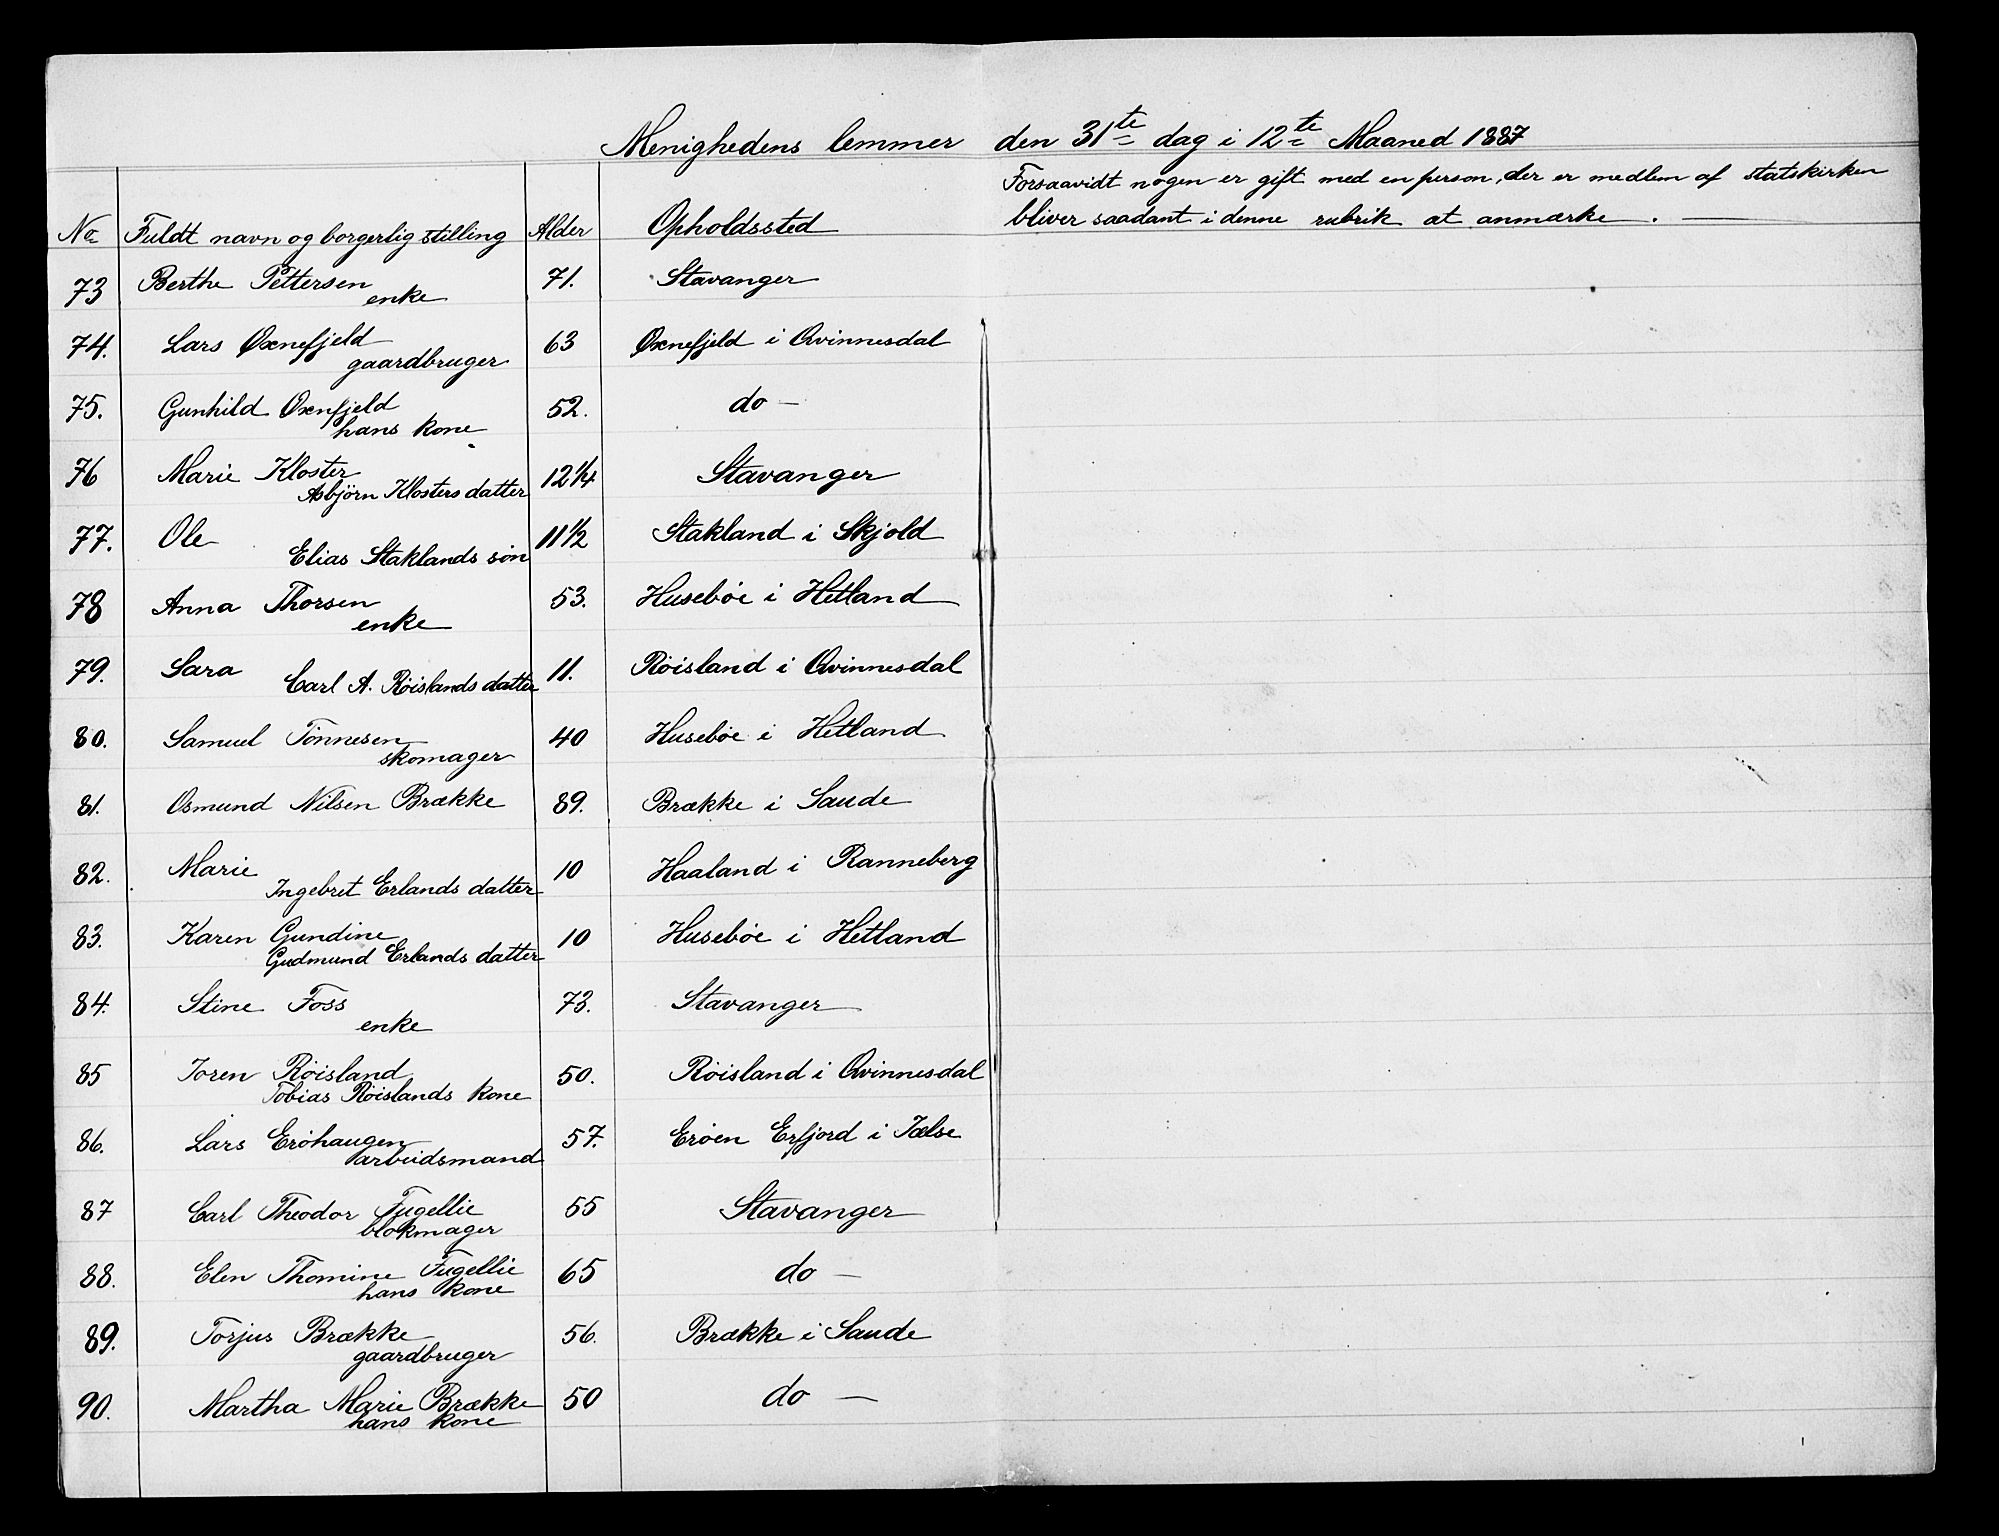 Menighedens lemmer den 31te dag i 12te Maaned 1887
No Fuldt navn og borgerlig stilling Alder Opholdssted
Forsaavidt nogen er gift med en person, der er medlem af statskirken
bliver saadant i denne rubrik at anmærke. —
73 Berthe Pettersen 71. Stavanger
enke
74. Lars Oxnefjeld 63 Oxnefjeld i Qvinnesdal
gaardbruger
75. Gunhild Oxnfjeld 52. do —
hans kone
76 Marie Kloster 12 1/4 Stavanger
Asbjörn Klosters datter
77. Ole 11 1/2 Stakland i Skjold
Elias Staklands søn
78 Anna Thorsen 53. Husebøe i Hetland
enke
79. Sara 11. Røisland i Qvinnesdal
Carl A. Røislands datter
80. Samuel Tønnesen 40 Husebøe i Hetland
skomager
81. Osmund Nilsen Brække 89. Brække i Saude
82. Marie 10 Haaland i Ranneberg
Ingebret Erlands datter
83. Karen Gundine 10 Husebøe i Hetland
Gudmund Erlands datter
84. Stine Foss 73. Stavanger
enke
85 Joren Røisland 50. Røisland i Qvinnesdal
Tobias Røislands kone
86. Lars Erøhaugen 57. Erøen Erfjord i Jælse
arbeidsmand
87 Carl Theodor Fugellie 55 Stavanger
blokmager
88. Elen Thomine Fugellie 65 do —
hans kone
89. Torjus Brække 56. Brække i Saude
gaardbruger
90. Martha Marie Brække 50 do —
hans kone